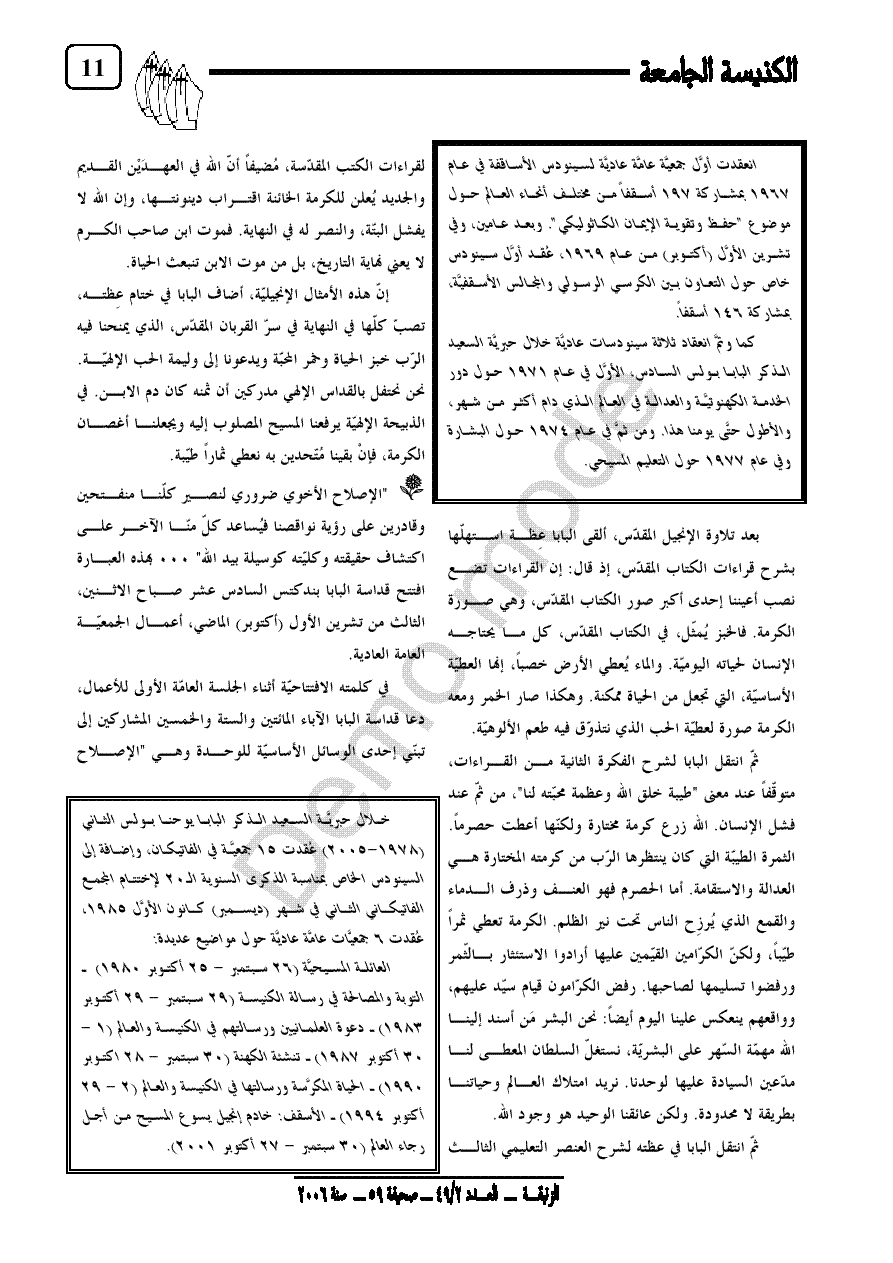 الكنيسة الجامعة
11
انعقدت أوَّل جمعيَّة عامَّة عاديَّة لسينودس الأساقفة في عام
١٩٦٧ بمشاركة ١٩٧ أسقفاً من مختلف أنحاء العالم حول
موضوع "حفظ وتقوية الإيمان الكاثوليكي". وبعد عامين، وفي
تشرين الأوَّل (أكتوبر) من عام ١٩٦٩، عُقد أوَّل سينودس
خاص حول التعاون بين الكرسي الرسولي والمجالس الأسقفيَّة،
بمشاركة ١٤٦ أسقفاً.
كما وتمَّ انعقاد ثلاثة سينودسات عاديَّة خلال حبريَّة السعيد
الذكر البابا بولس السادس، الأوَّل في عام ١٩٧١ حول دور
الخدمة الكهنوتيَّة والعدالة في العالم الذي دام أكثر من شهر،
والأطول حتَّى يومنا هذا. ومن ثمَّ في عام ١٩٧٤ حول البشارة
وفي عام ١٩٧٧ حول التعليم المسيحي.
بعد تلاوة الإنجيل المقدّس، ألقى البابا عِظة استهلّها
بشرح قراءات الكتاب المقدّس، إذ قال: إن القراءات تضع
نصب أعيننا إحدى أكبر صور الكتاب المقدّس، وهي صورة
الكرمة. فالخبز يُمثّل، في الكتاب المقدّس، كل ما يحتاجه
الإنسان لحياته اليوميّة. والماء يُعطي الأرض خصباً، إنها العطيّة
الأساسيّة، التي تجعل من الحياة ممكنة. وهكذا صار الخمر ومعه
الكرمة صورة لعطيّة الحب الذي نتذوّق فيه طعم الألوهيّة.
ثمّ انتقل البابا لشرح الفكرة الثانية من القراءات،
متوقّفاً عند معنى "طيبة خلق الله وعظمة محبّته لنا"، من ثمّ عند
فشل الإنسان. الله زرع كرمة مختارة ولكنّها أعطت حصرماً.
الثمرة الطيّبة التي كان ينتظرها الرّب من كرمته المختارة هي
العدالة والاستقامة. أما الحصرم فهو العنف وذرف الدماء
والقمع الذي يُرزِح الناس تحت نير الظلم. الكرمة تعطي ثمراً
طيّباً، ولكنّ الكرّامين القيّمين عليها أرادوا الاستئثار بالثّمر
ورفضوا تسليمها لصاحبها. رفض الكرّامون قيام سيّد عليهم،
وواقعهم ينعكس علينا اليوم أيضاً: نحن البشر مَن أسند إلينا
الله مهمّة السّهر على البشريّة، نستغلّ السلطان المعطى لنا
مدّعين السيادة عليها لوحدنا. نريد امتلاك العالم وحياتنا
بطريقة لا محدودة. ولكن عائقنا الوحيد هو وجود الله.
ثمّ انتقل البابا في عظته لشرح العنصر التعليمي الثالث
لقراءات الكتب المقدّسة، مُضيفاً أنّ الله في العهدَيْن القديم
والجديد يُعلن للكرمة الخائنة اقتراب دينونتها، وإن الله لا
يفشل البتّة، والنصر له في النهاية. فموت ابن صاحب الكرم
لا يعني نهاية التاريخ، بل من موت الابن تنبعث الحياة.
إنّ هذه الأمثال الإنجيليّة، أضاف البابا في ختام عِظته،
تصبّ كلّها في النهاية في سرّ القربان المقدّس، الذي يمنحنا فيه
الرّب خبز الحياة وخمر المحبّة ويدعونا إلى وليمة الحب الإلهيّة.
نحن نحتفل بالقداس الإلهي مدركين أن ثمنه كان دم الابن. في
الذبيحة الإلهيّة يرفعنا المسيح المصلوب إليه ويجعلنا أغصان
الكرمة، فإنْ بقينا مُتّحدين به نعطي ثماراً طيّبة.
"الإصلاح الأخوي ضروري لنصير كلّنا منفتحين
وقادرين على رؤية نواقصنا فيُساعد كلّ منّا الآخر على
اكتشاف حقيقته وكليّته كوسيلة بيد الله" ٠٠٠ بهذه العبارة
افتتح قداسة البابا بندكتس السادس عشر صباح الاثنين،
الثالث من تشرين الأول (أكتوبر) الماضي، أعمال الجمعيّة
العامة العادية.
في كلمته الافتتاحيّة أثناء الجلسة العامّة الأولى للأعمال،
دعا قداسة البابا الآباء المائتين والستة والخمسين المشاركين إلى
تبنّي إحدى الوسائل الأساسيّة للوحدة وهي "الإصلاح
خلال حبريَّة السعيد الذكر البابا يوحنا بولس الثاني
(١٩٧٨-٢٠٠٥) عُقدت ١٥ جمعيَّة في الفاتيكان، وإضافة إلى
السينودس الخاص بمناسبة الذكرى السنوية الـ٢٠ لإختتام المجمع
الفاتيكاني الثاني في شهر (ديسمبر) كانون الأوَّل ١٩٨٥،
عُقدت ٦ جمعيَّات عامَّة عاديَّة حول مواضيع عديدة:
العائلة المسيحيَّة (٢٦ سبتمبر – ٢٥ أكتوبر ١٩٨٠) ـ
التوبة والمصالحة في رسالة الكنيسة (٢٩ سبتمبر – ٢٩ أكتوبر
١٩٨٣) ـ دعوة العلمانيين ورسالتهم في الكنيسة والعالم (١ –
٣٠ أكتوبر ١٩٨٧) ـ تنشئة الكهنة (٣٠ سبتمبر – ٢٨ اكتوبر
١٩٩٠) ـ الحياة المكرَّسة ورسالتها في الكنيسة والعالم (٢ – ٢٩
أكتوبر ١٩٩٤) ـ الأسقف: خادم إنجيل يسوع المسيح من أجل
رجاء العالم (٣٠ سبتمبر – ٢٧ أكتوبر ٢٠٠١).
الزنبقة ــ العدد ٤٩/٢ ــ صحيفة ٥٩ ــ سنة ٢٠٠٦
Demo mode